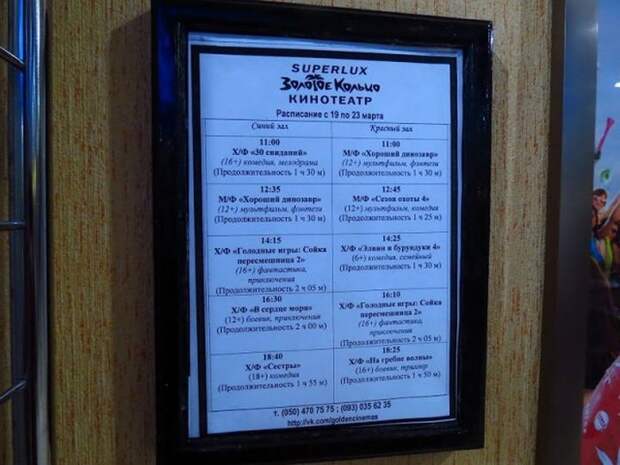 SUPERLUX
Золотое Кольцо
КИНОТЕАТР
Расписание с 19 по 23 марта
Синий зал
Красный зал
11:00
Х/Ф «30 свиданий»
(16+) комедия, мелодрама
(Продолжительность 1 ч 30 м)
11:00
М/Ф «Хороший динозавр»
(12+) мультфильм, фэнтези
(Продолжительность 1 ч 30 м)
12:35
М/Ф «Хороший динозавр»
(12+) мультфильм, фэнтези
(Продолжительность 1 ч 30 м)
12:45
М/Ф «Сезон охоты 4»
(12+) мультфильм, комедия
(Продолжительность 1 ч 25 м)
14:15
Х/Ф «Голодные игры: Сойка
пересмешница 2»
(16+) фантастика,
приключения
(Продолжительность 2 ч 05 м)
14:25
Х/Ф «Элвин и бурундуки 4»
(6+) комедия, семейный
(Продолжительность 1 ч 30 м)
16:30
Х/Ф «В сердце моря»
(12+) боевик, приключения
(Продолжительность 2 ч 00 м)
16:10
Х/Ф «Голодные игры: Сойка
пересмешница 2»
(16+) фантастика,
приключения
(Продолжительность 2 ч 05 м)
18:40
Х/Ф «Сестры»
(18+) комедия
(Продолжительность 1 ч 55 м)
18:25
Х/Ф «На гребне волны»
(16+) боевик, триллер
(Продолжительность 1 ч 50 м)
т. (050) 470 75 75 ; (093) 035 62 35
http://vk.com/goldencinemas